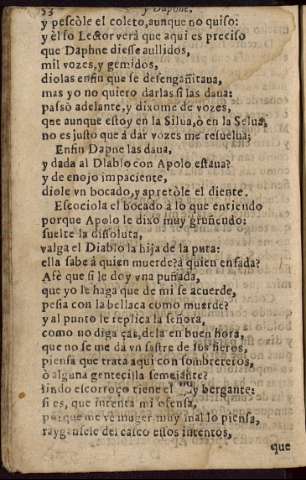 53 y Daphne,
y pescòle el coleto, aunque no quiso:
y èl so Lector verà que aqui es preciso
que Daphne diesse aullidos,
mil vozes, y gemidos;
diolas enfin que se desgañitaua,
mas yo no quiero darlas si las daua:
passò adelante, y dixome de vozes,
que aunque estoy en la Silua, ò en la Selua,
no es justo que à dar vozes me resuelua;
Enfin Dapne las daua,
y dada al Diablo con Apolo estaua?
y de enojo impaciente,
diole vn bocado, y apretòle el diente.
Escociola el bocado à lo que entiendo
porque Apolo le dixo muy gruñendo:
suelte la dissoluta,
valga el Diablo la hija de la puta:
ella sabe à quien muerde? à quien enfada?
Afè que si le doy vna puñada,
que yo le haga que de mi se acuerde,
pesia con la bellaca como muerde?
y al punto le replica la señora,
como no diga çaá, dela en buen hora,
que no se me dà vn sastre de sus fieros,
piensa que trata aqui con sombrereros,
ò alguna gentecilla semejante?
lindo escorroço tiene el muy bergante:
si es, que intenta mi ofensa,
porque me ve muger muy mal lo piensa,
raygansele del casco estos intentos,
que